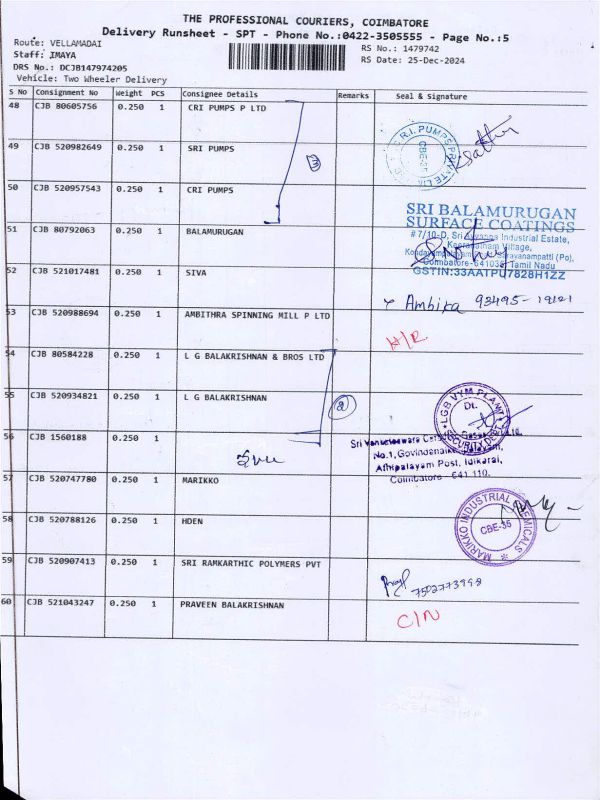 THE PROFESSIONAL COURIERS, COIMBATORE
Delivery Runsheet - SPT - Phone No.:0422-3505555 - Page No.:5
Route: VELLAMADAI
RS No.: 1479742
Staff: IMAYA
RS Date: 25-Dec-2024
DRS No.: DCJB147974205
Vehicle: Two Wheeler Delivery
S No Consignment No Weight PCS Consignee Details Remarks Seal & Signature
48 CJB 80605756 0.250 1 CRI PUMPS P LTD
49 CJB 520982649 0.250 1 SRI PUMPS
50 CJB 520957543 0.250 1 CRI PUMPS
C.R.I. PUMPS PRIVATE LTD
CBE-35
51 CJB 80792063 0.250 1 BALAMURUGAN
SRI BALAMURUGAN
SURFACE COATINGS
#7/10-D, Sri Industrial Estate,
Keeranatham Village,
Saravanampatti (Po),
Coimbatore-641035 Tamil Nadu
GSTIN:33AATPU7828H1ZZ
52 CJB 521017481 0.250 1 SIVA
Ambika 98495-19121
53 CJB 520988694 0.250 1 AMBITHRA SPINNING MILL P LTD
H/R
54 CJB 80584228 0.250 1 L G BALAKRISHNAN & BROS LTD
55 CJB 520934821 0.250 1 L G BALAKRISHNAN
2
LGB VYM PLANT
Dt.
SECURITY DEPT
56 CJB 1560188 0.250 1
Sri Venkateswara
No.1, Govindanaikenpalayam,
Athipalayam Post, Idikarai,
Coimbatore - 641 110.
57 CJB 520747780 0.250 1 MARIKKO
58 CJB 520788126 0.250 1 HDEN
MARIKKO INDUSTRIAL CHEMICALS
CBE-35
59 CJB 520907413 0.250 1 SRI RAMKARTHIC POLYMERS PVT
7502773998
60 CJB 521043247 0.250 1 PRAVEEN BALAKRISHNAN
C/N